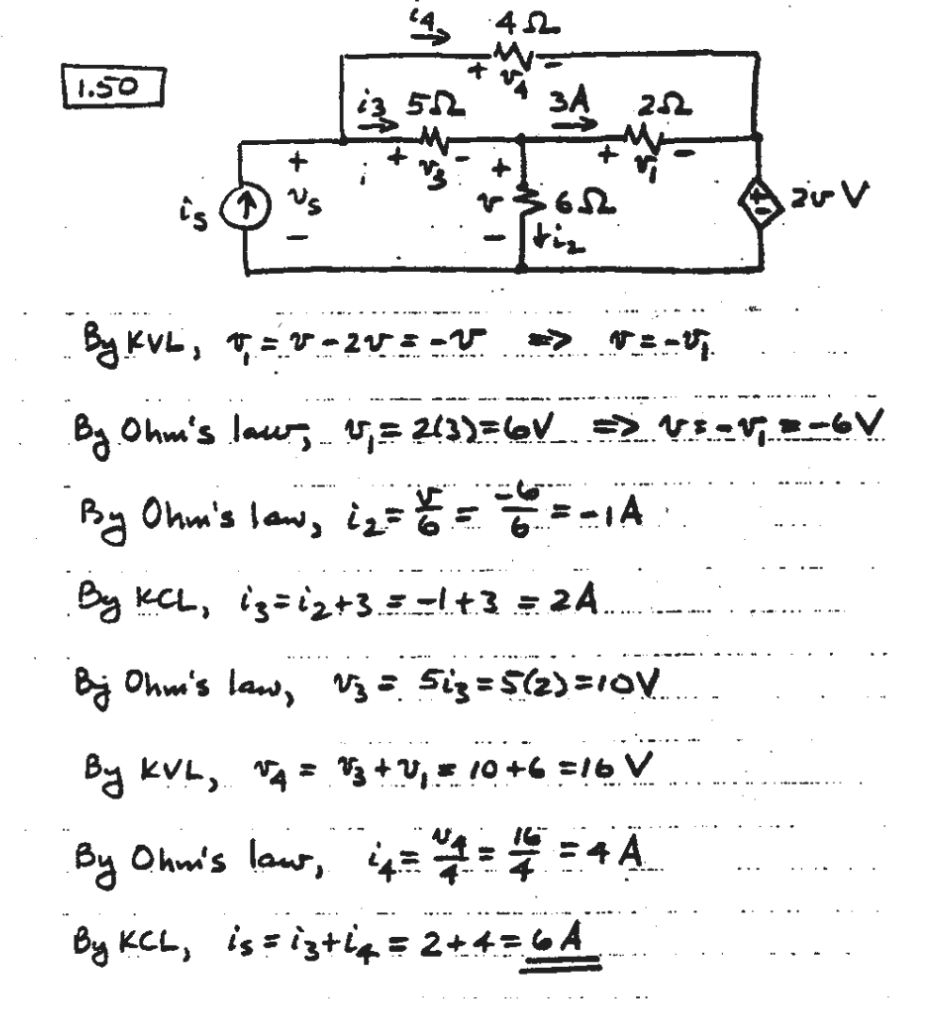 1.50
i₄ 4Ω
+ v₄ -
i₃ 5Ω 3A 2Ω
+ v₃ - + v₁ -
iₛ + vₛ - + v - 6Ω + - 2v V
i₂
By KVL, v₁ = v - 2v = -v => v = -v₁
By Ohm's law, v₁ = 2(3) = 6V => v = -v₁ = -6V
By Ohm's law, i₂ = v/6 = -6/6 = -1A
By KCL, i₃ = i₂ + 3 = -1 + 3 = 2A
By Ohm's law, v₃ = 5i₃ = 5(2) = 10V
By KVL, v₄ = v₃ + v₁ = 10 + 6 = 16 V
By Ohm's law, i₄ = v₄/4 = 16/4 = 4 A
By KCL, iₛ = i₃ + i₄ = 2 + 4 = 6 A